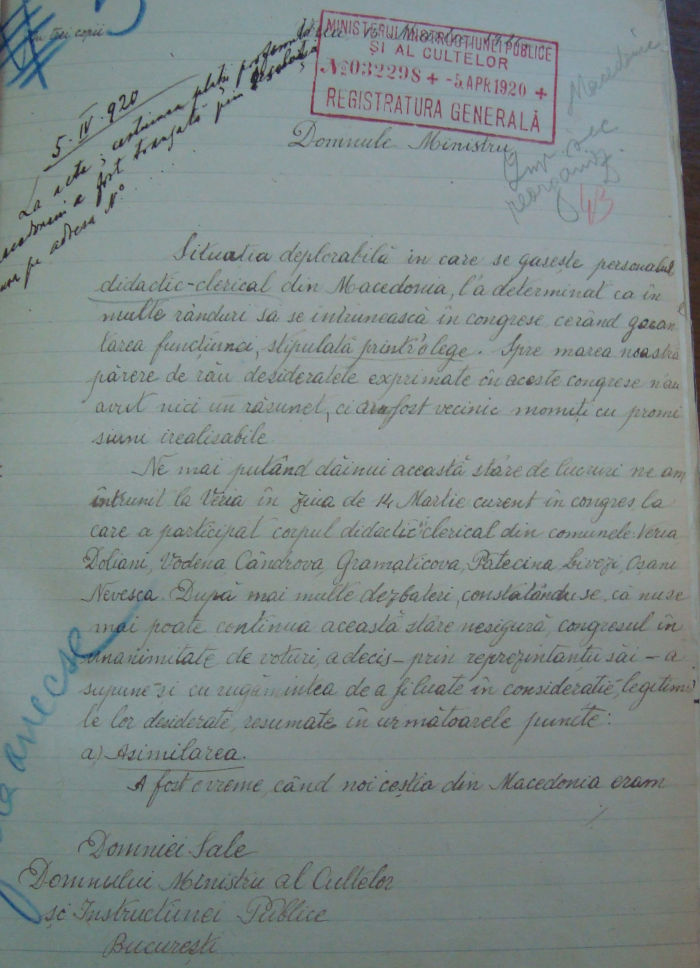 în trei copii
Veria 15 Martie 1920
MINISTERUL INSTRUCTIUNEI PUBLICE
ȘI AL CULTELOR
No 032298 + -5.APR 1920 +
REGISTRATURA GENERALĂ
5-IV-920
La acte; cestiunea plății
a fost tranșată prin
pe adresa No
Macedonia
43
Domnule Ministru,
Situatia deplorabilă in care se gasește personalul
didactic-clerical din Macedonia, l'a determinat ca în
multe rânduri să se intrunească în congrese, cerând garan
tarea functiunei, stipulată printr'o lege. Spre marea noastră
părere de rău desideratele exprimate în aceste congrese n'au
avut nici un răsunet, ci am fost vecinic momiți cu promi
siuni irealisabile.
Ne mai putând dăinui această stare de lucruri ne am
întrunit la Veria în ziua de 14 Martie curent în congres la
care a participat corpul didactic clerical din comunele: Veria
Doliani, Vodena Cândrova, Gramaticova, Pătecina Livezi, Oșani
Nevesca. După mai multe dezbateri, constatându se, că nu se
mai poate continua această stare nesigură, congresul în
unanimitate de voturi, a decis - prin reprezintantu săi - a
supune-și cu rugămintea de a fi luate în consideratie, legitime
le lor desiderate, resumate în următoarele puncte:
a) Asimilarea.
A fost o vreme, când noi ceștia din Macedonia eram
./.
anecse
Domniei Sale
Domnului Ministru al Cultelor
și Instructiunei Publice
București